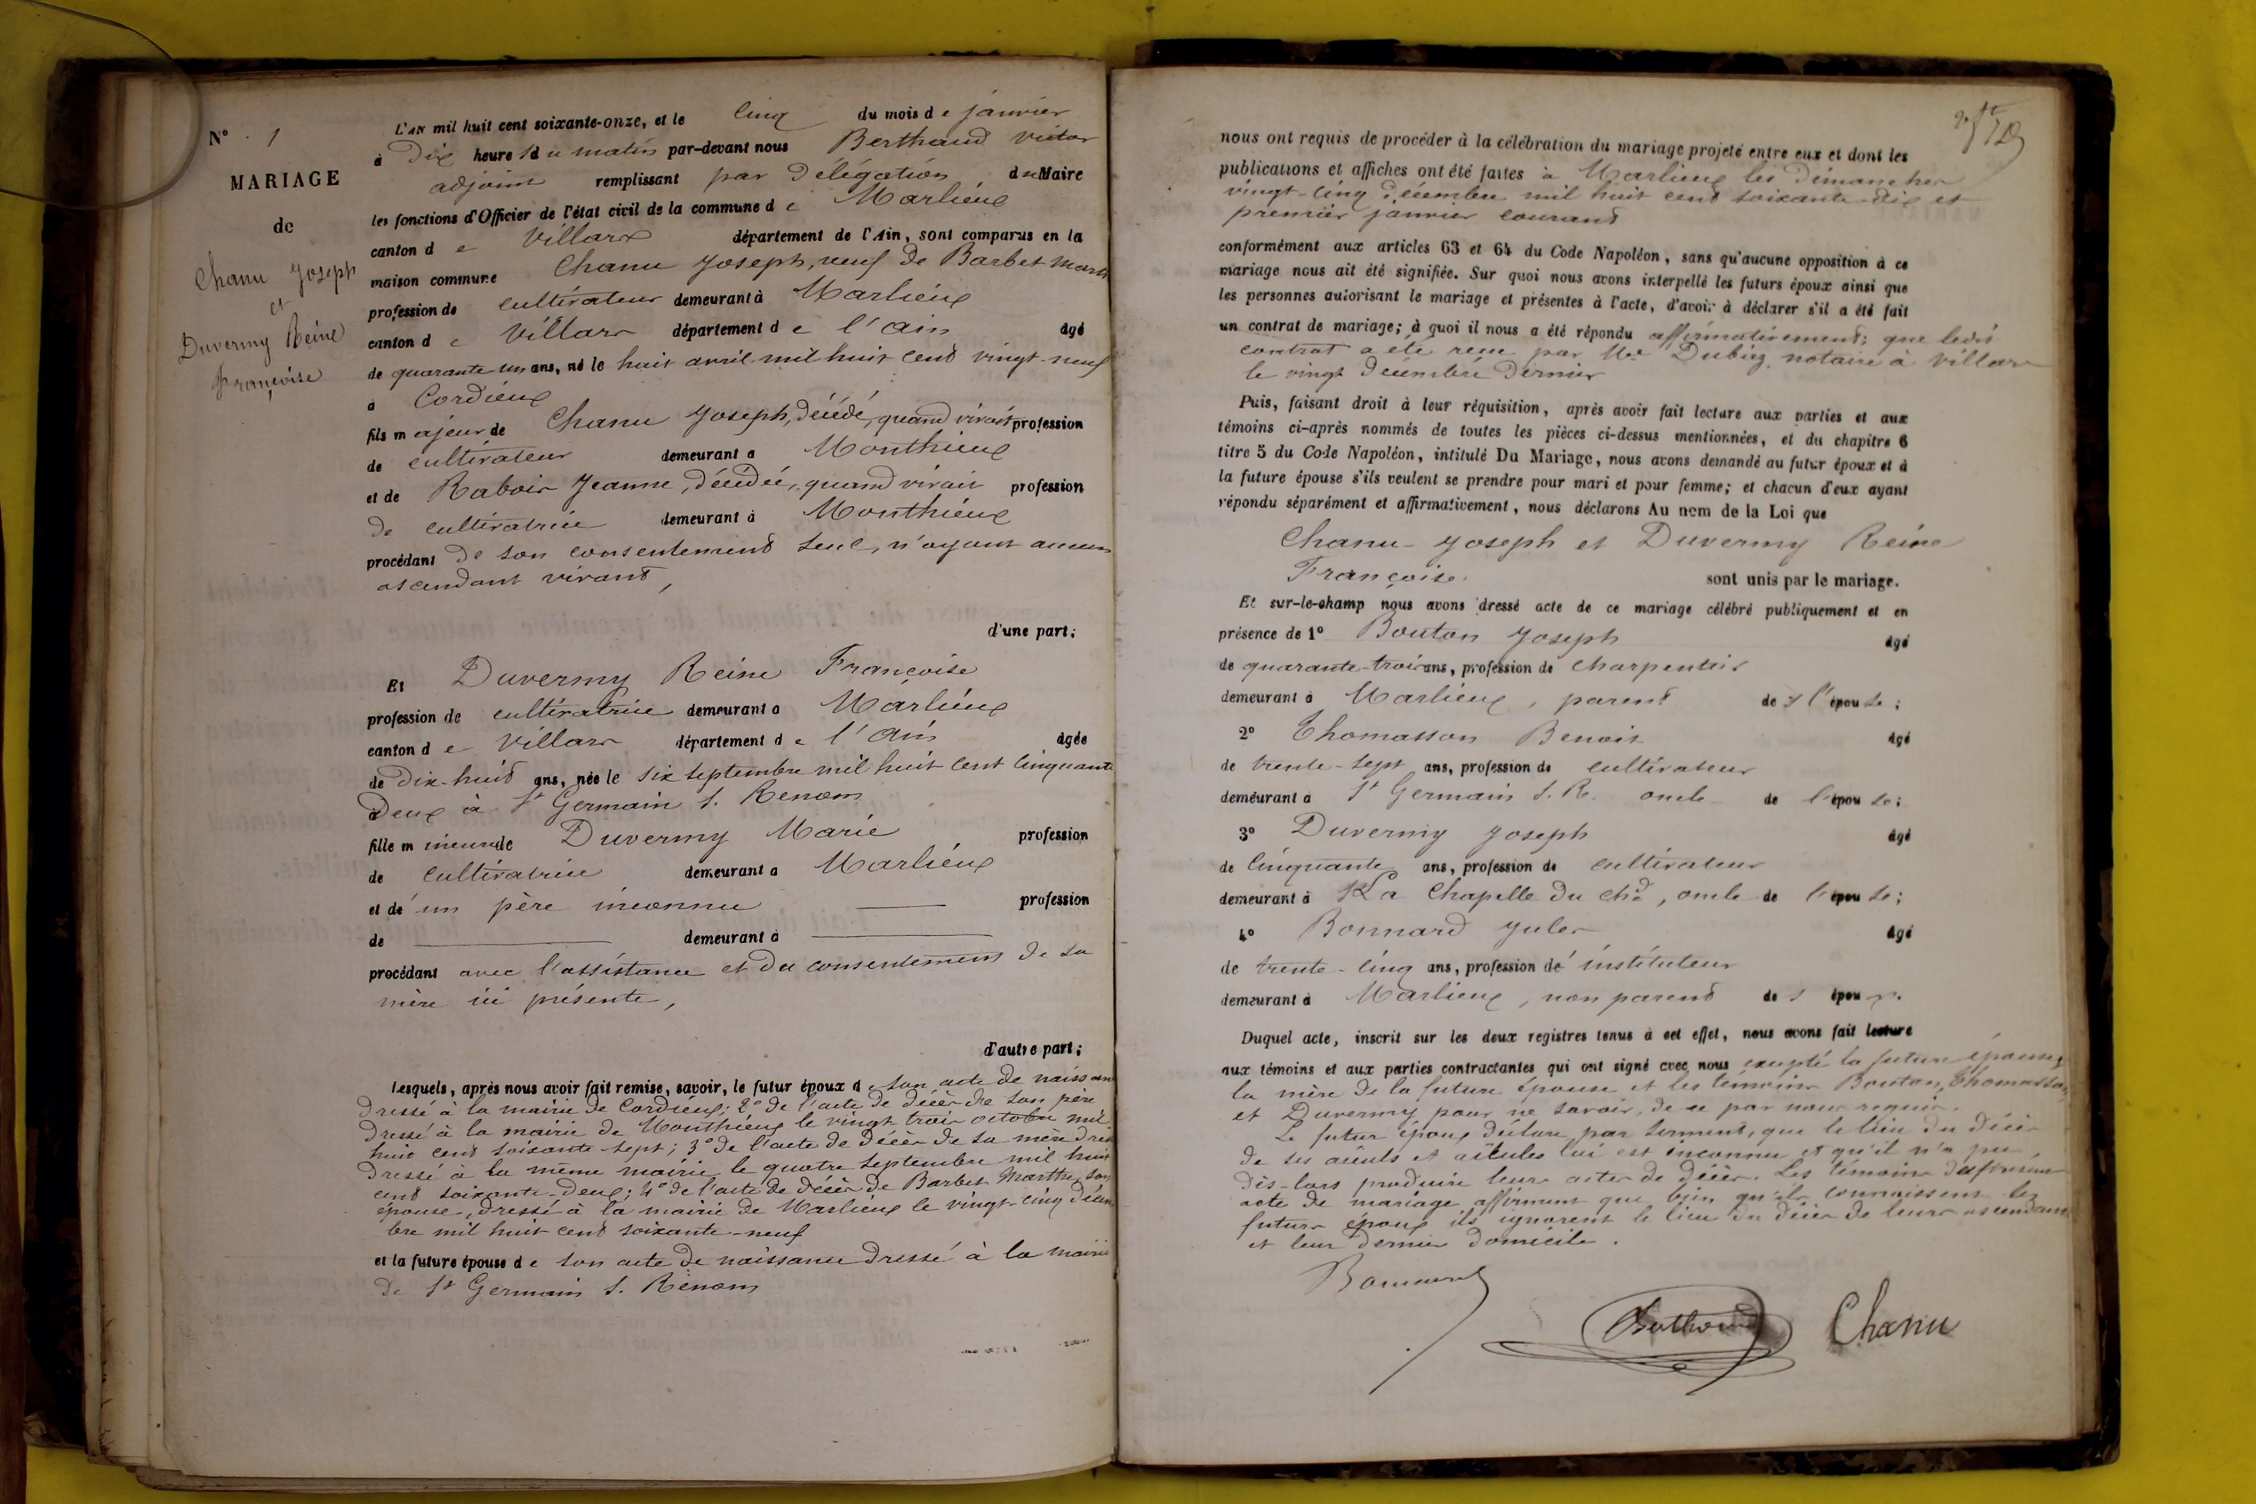 N° 1
MARIAGE
de
Chanu Joseph
et
Duvermy Reine
Françoise
L'AN mil huit cent soixante-onze, et le cinq du mois de janvier
à dix heures du matin par-devant nous Berthaud Victor
adjoint remplissant par délégation du Maire
les fonctions d'Officier de l'état civil de la commune de Marlieux
canton de Villars département de l'Ain, sont comparus en la
maison commune Chanu Joseph, veuf de Barbet Marthe
profession de cultivateur demeurant à Marlieux
canton de Villars département de l'Ain âgé
de quarante un ans, né le huit avril mil huit cent vingt-neuf
à Cordieux
fils majeur de Chanu Joseph, décédé, quand vivait profession
de cultivateur demeurant à Monthieux
et de Raboir Jeanne, décédée, quand vivait profession
de cultivatrice demeurant à Monthieux
procédant de son consentement seul, n'ayant aucun
ascendant vivant,
d'une part;
Et Duvermy Reine Françoise
profession de cultivatrice demeurant à Marlieux
canton de Villars département de l'Ain âgée
de dix-huit ans, née le six septembre mil huit cent cinquante
deux à St Germain s. Renom
fille mineure de Duvermy Marie profession
de cultivatrice demeurant à Marlieux
et de un père inconnu profession
de demeurant à
procédant avec l'assistance et du consentement de sa
mère ici présente,
d'autre part;
Lesquels, après nous avoir fait remise, savoir, le futur époux de son acte de naissance
dressé à la mairie de Cordieux; 2° de l'acte de décès de son père
dressé à la mairie de Monthieux le vingt trois octobre mil
huit cent soixante-sept; 3° de l'acte de décès de sa mère dres
dressé à la même mairie le quatre septembre mil huit
cent soixante-deux; 4° de l'acte de décès de Barbet Marthe son
épouse, dressé à la mairie de Marlieux le vingt-cinq décem
bre mil huit cent soixante-neuf
et la future épouse de son acte de naissance dressé à la mairie
de St Germain s. Renom
nous ont requis de procéder à la célébration du mariage projeté entre eux et dont les
publications et affiches ont été faites à Marlieux les dimanches
vingt-cinq décembre mil huit cent soixante-dix et
premier janvier courant
conformément aux articles 63 et 64 du Code Napoléon, sans qu'aucune opposition à ce
mariage nous ait été signifiée. Sur quoi nous avons interpellé les futurs époux ainsi que
les personnes autorisant le mariage et présentes à l'acte, d'avoir à déclarer s'il a été fait
un contrat de mariage; à quoi il nous a été répondu affirmativement; que ledit
contrat a été reçu par Me Dubiez notaire à Villars
le vingt décembre dernier
Puis, faisant droit à leur réquisition, après avoir fait lecture aux parties et aux
témoins ci-après nommés de toutes les pièces ci-dessus mentionnées, et du chapitre 6
titre 5 du Code Napoléon, intitulé Du Mariage, nous avons demandé au futur époux et à
la future épouse s'ils veulent se prendre pour mari et pour femme; et chacun d'eux ayant
répondu séparément et affirmativement, nous déclarons Au nom de la Loi que
Chanu Joseph et Duvermy Reine
Françoise sont unis par le mariage.
Et sur-le-champ nous avons dressé acte de ce mariage célébré publiquement et en
présence de 1° Bouton Joseph âgé
de quarante-trois ans, profession de charpentier
demeurant à Marlieux, parent de l'épouse;
2° Thomasson Benoit âgé
de trente-sept ans, profession de cultivateur
demeurant à St Germain s. R. oncle de l'épouse;
3° Duvermy Joseph âgé
de cinquante ans, profession de cultivateur
demeurant à La Chapelle du Chd, oncle de l'épouse;
4° Bonnard Jules âgé
de trente-cinq ans, profession de instituteur
demeurant à Marlieux, non parent des époux.
Duquel acte, inscrit sur les deux registres tenus à cet effet, nous avons fait lecture
aux témoins et aux parties contractantes qui ont signé avec nous excepté la future épouse,
la mère de la future épouse et les témoins Bouton, Thomasson
et Duvermy pour ne savoir, de ce par nous requis.
Le futur époux déclare par serment, que le lieu du décès
de ses aïeuls et aïeules lui est inconnu et qu'il n'a pu
dès-lors produire leurs actes de décès. Les témoins du présent
acte de mariage affirment que bien qu'ils connaissent les
futurs époux ils ignorent le lieu du décès de leurs ascendants
et leur dernier domicile.
Bonnard
Berthaud Chanu